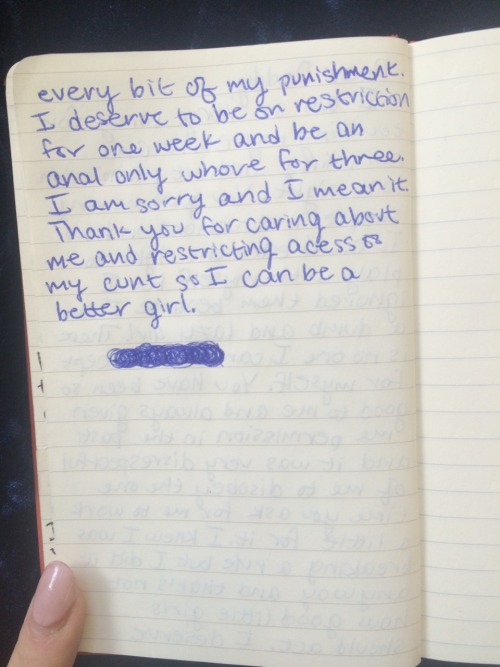 every bit of my punishment.
I deserve to be on restriction
for one week and be an
anal only whore for three.
I am sorry and I mean it.
Thank you for caring about
me and restricting acess to
my cunt so I can be a
better girl.